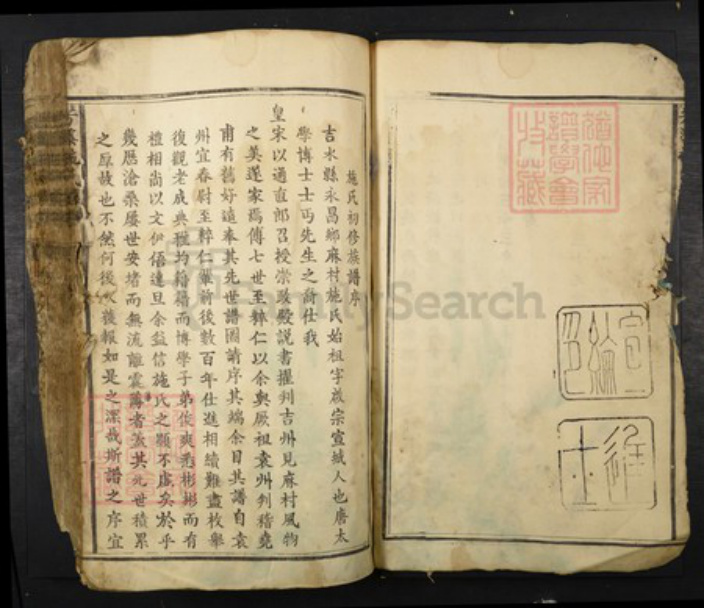 施氏初修族譜序
吉水縣永昌鄉麻村施氏始祖字啟宗宣城人也唐太
學博士士丐先生之裔仕我
皇宋以通直郎召授崇政殿說書擢判吉州見麻村風物
之美遂家焉傳七世至粹仁以余與厥祖袁州判稽堯
甫有舊好遠奉其先世譜圖請序其端余目其譜自袁
州宜春尉至粹仁輩前後數百年仕進相續難盡枚舉
復觀老成典雅均籍籍而博學子弟俊爽悉彬彬而有
禮相尚以文伊俉達旦余益信施氏之顯不虛矣於乎
幾歷滄桑屢世安堵而無流離震蕩者蓋其先世積累
之厚故也不然何後人獲報如是之深哉斯譜之序宜
FamilySearch
進士